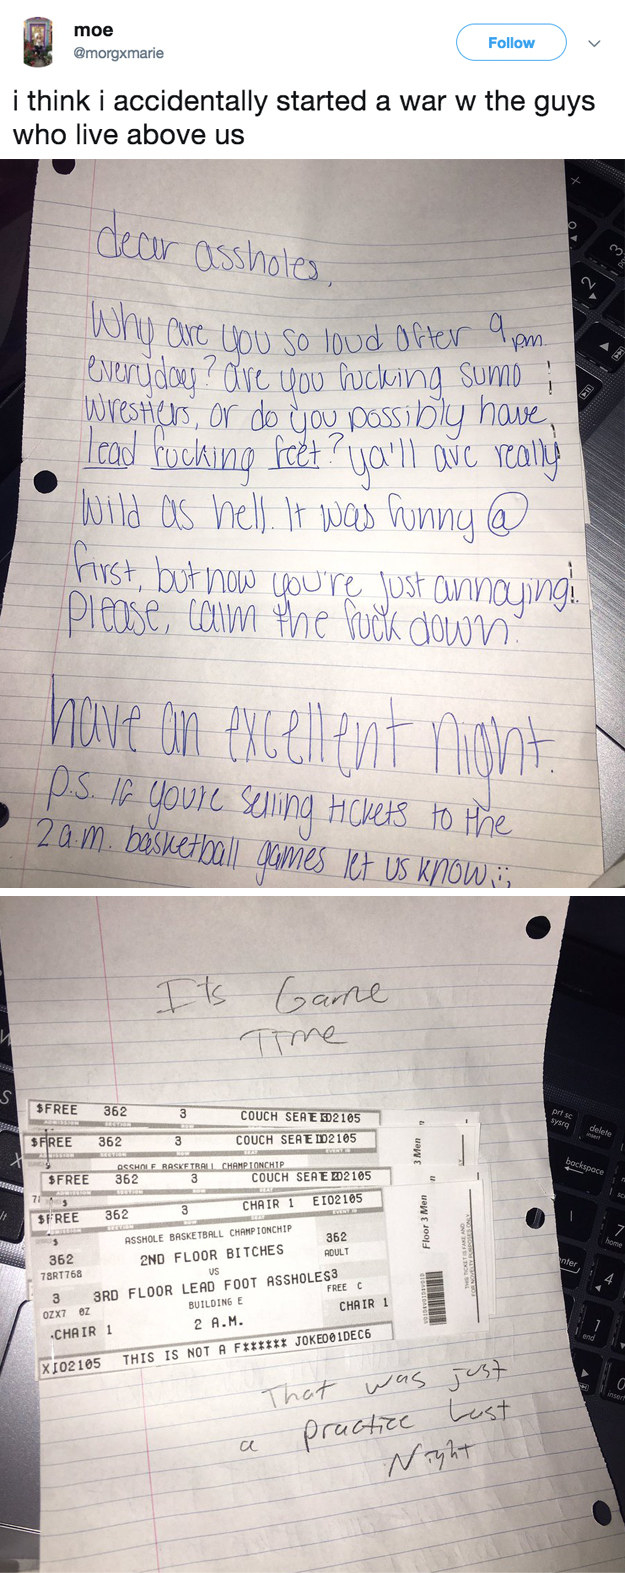 moe
@morgxmarie
Follow
i think i accidentally started a war w the guys
who live above us
dear assholes,
Why are you so loud after 9 pm
everyday? are you fucking sumo
wrestlers, or do you possibly have
lead fucking feet? ya'll are really
wild as hell. It was funny @
first, but now you're just annoying!
please, calm the fuck down.
have an excellent night.
P.S. If you're selling tickets to the
2 a.m. basketball games let us know
Its Game
Time
$FREE 362 3 COUCH SEAT
$FREE 362 3 COUCH SEAT
ASSHOLE BASKETBALL CHAMPIONCHIP
$FREE 362 3 COUCH SEAT
$FREE 362 3 CHAIR 1 EIO2105
ASSHOLE BASKETBALL CHAMPIONCHIP
362 2ND FLOOR BITCHES 362
78RT768 VS ADULT
3 3RD FLOOR LEAD FOOT ASSHOLES 3
OZX7 BUILDING E FREE C
CHAIR 1 2 A.M. CHAIR 1
XIO2105 THIS IS NOT A F****** JOKE 01DEC6
3 Men
Floor 3 Men
THIS TICKET IS FAKE AND
FOR NOVELTY PURPOSES ONLY
That was just
a practice Last
Night
prt sc
sysrq
delete
insert
backspace
home
enter
end